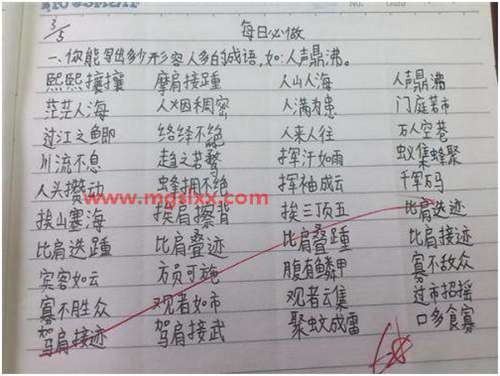 3/5
每日必做
一、你能写出多少形容人多的成语，如：人声鼎沸。
熙熙攘攘 摩肩接踵 人山人海 人声鼎沸
茫茫人海 人烟稠密 人满为患 门庭若市
过江之鲫 络绎不绝 人来人往 万人空巷
川流不息 趋之若鹜 挥汗如雨 蚁集蜂聚
人头攒动 蜂拥不绝 挥袖成云 千军万马
www.mgsixx.com
挨山塞海 挨肩擦背 挨三顶五 比肩迭迹
比肩迭踵 比肩叠迹 比肩叠踵 比肩接迹
宾客如云 方员可施 腹有鳞甲 寡不敌众
寡不胜众 观者如市 观者云集 过市招摇
驾肩接迹 驾肩接武 聚蚊成雷 口多食寡